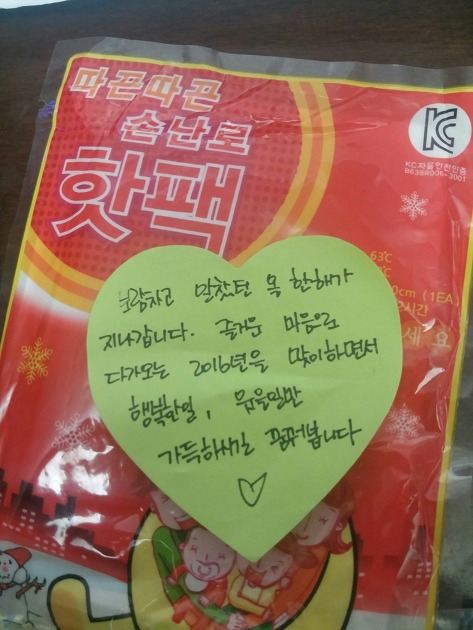 따끈따끈
손난로
핫팩
KC
KC자율안전인증
B63BR006-3001
63℃
℃
0cm (1EA
시간
세요
보람차고 알찼던 옥 한해가
지나갑니다. 즐거운 마음으로
다가오는 2016년을 맞이하면서
행복한일, 웃을일만
가득하시길 꿈꿔봅니다